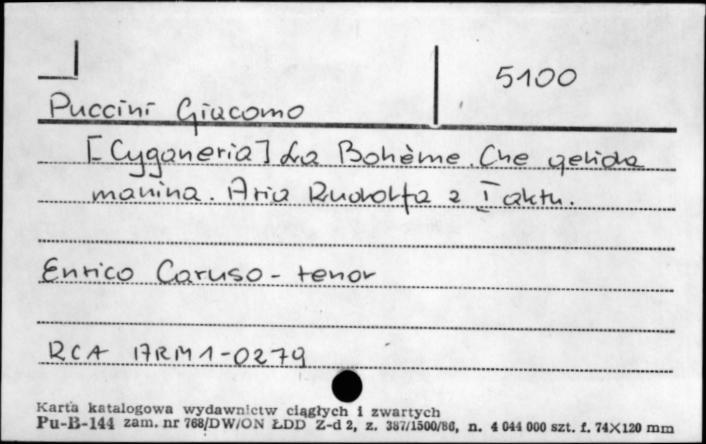 5100
Puccini Giacomo
[Cyganeria] La Bohème. Che gelida
manina. Aria Rudolfa z I aktu.
Enrico Caruso - tenor
RCA 17RM1-0279
Karta katalogowa wydawnictw ciągłych i zwartych
Pu-B-144 zam. nr 768/DW/ON ŁDD Z-d 2, z. 387/1500/86, n. 4 044 000 szt. f. 74X120 mm